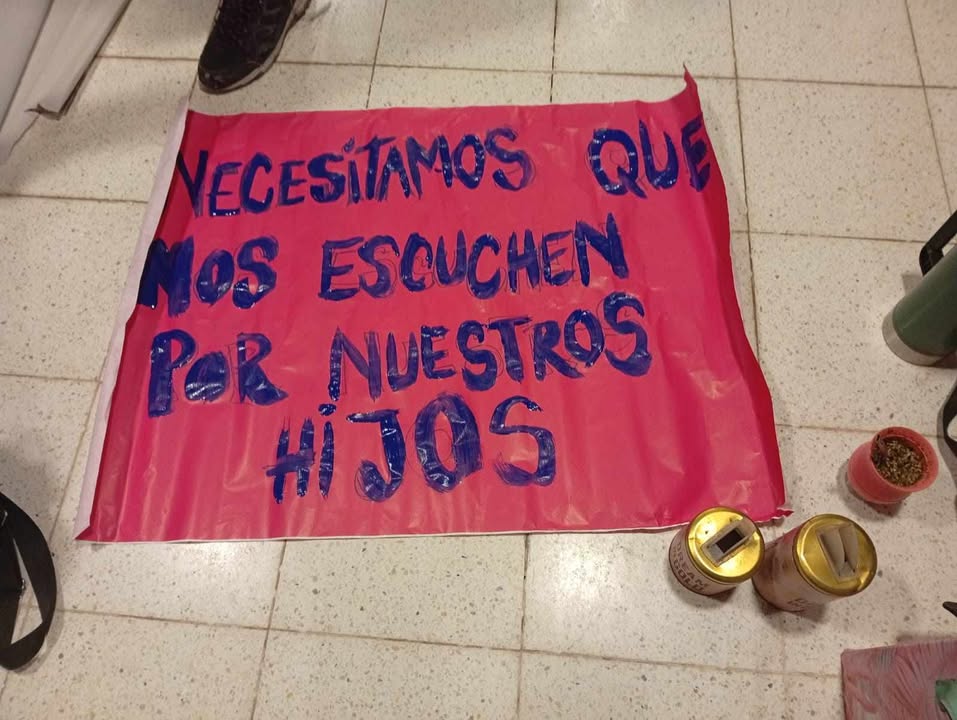 NECESiTAMOS QUE
NOS ESCUCHEN
POR NUESTROS
HiJOS